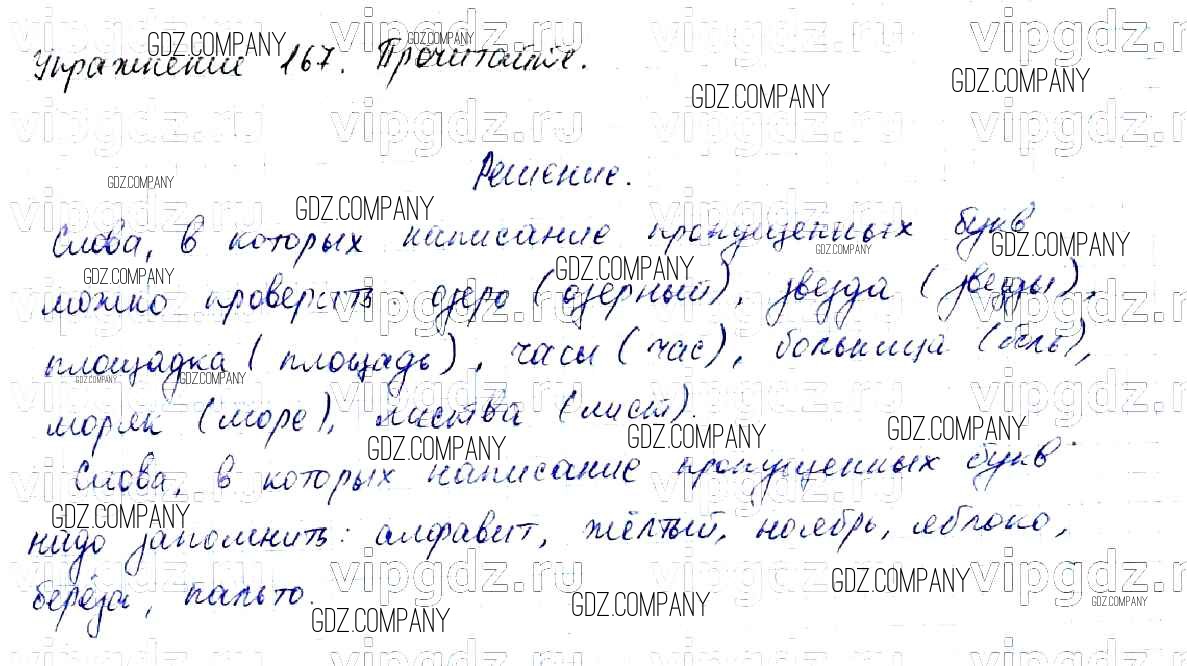 Упражнение 167. Прочитайте.
Решение.
Слова, в которых написание пропущенных букв
можно проверить: озеро (озёрный), звезда (звёзды),
площадка (площадь), часы (час), больница (боль),
моряк (море), листва (лист).
Слова, в которых написание пропущенных букв
надо запомнить: алфавит, жёлтый, ноябрь, яблоко,
берёза, пальто.